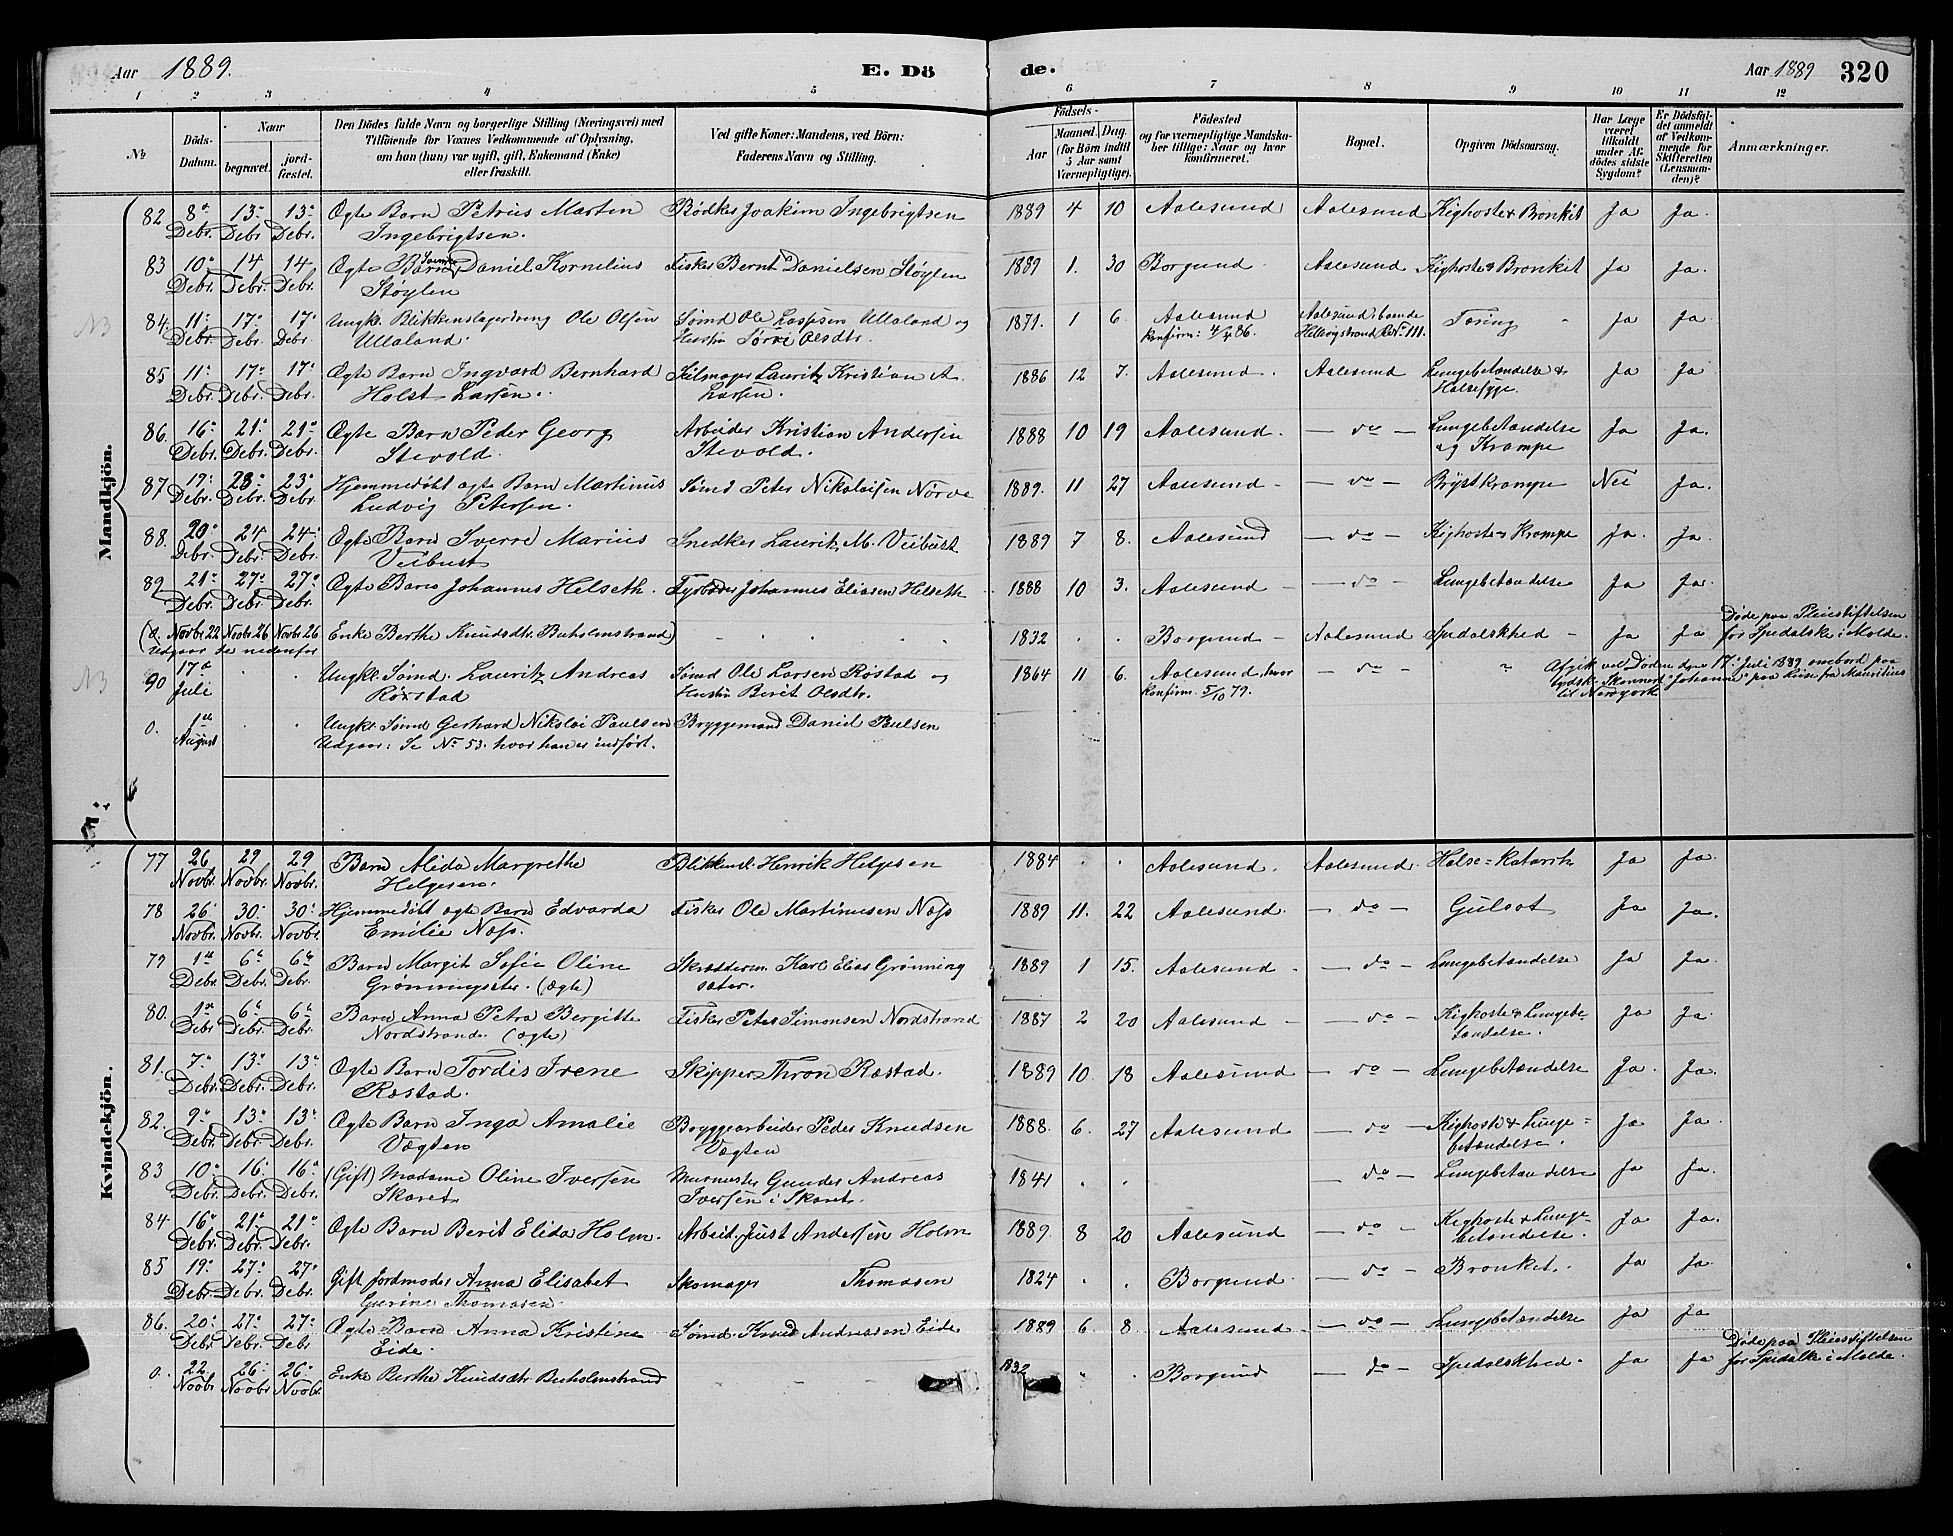 Aar 1889. E. Dö de. Aar 1889 320
1 2 3 4 5 6 7 8 9 10 11 12
No. Döds-Datum. Naar begravet. jordfæstet. Den Dödes fulde Navn og borgerlige Stilling (Næringsvei) med Tilföiende for Voxnes Vedkommende af Oplysning, om han (hun) var ugift, gift, Enkemand (Enke) eller fraskilt. Ved gifte Koner: Mandens, ved Börn: Faderens Navn og Stilling. Födsels- Aar Maaned. Dag. (for Börn indtil 5 Aar samt Værnepligtige). Födested og for værnepligtige Mandskaber tillige: Naar og hvor konfirmeret. Bopæl. Opgiven Dödsaarsag. Har Læge været tilkaldt under Afdödes sidste Sygdom? Er Dödsfaldet anmeldt af Vedkommende for Skifteretten (Lensmanden)? Anmærkninger.
Mandkjön.
82 8de Debr. 13de Debr 13de Debr. Ægte Barn Petrus Martin Ingebrigtsen. Bødker Joakim Ingebrigtsen 1889 4 10 Aalesund Aalesund Kighoste & Bronkit Ja Ja.
83 10de Debr. 14 Debr. 14 Debr. Ægte Barn Daniel Kornelius Støylen Fisker Bernt Danielsen Støylen 1889 1. 30 Borgund Aalesund Kighoste & Bronkit Ja Ja.
NB 84. 11te Debr. 17de Debr. 17de Debr. Ungk. Blikkenslagerdreng Ole Olsen Ullaland. Sømd Ole Larsen Ullaland og Hustru Sørine Olsdtr. 1871. 1 6. Aalesund konfirm: 4/4 86. Aalesund, boende Hellevigstrand No. 111. Tæring Ja Ja.
85 11te Debr. 17de Debr. 17de Debr. Ægte Barn Ingvard Bernhard Holst Larsen. Seilmager Lauritz Kristian A. Larsen. 1886 12 7. Aalesund. Aalesund Lungebetændelse & Halsesyge. Ja Ja
86. 16de Debr. 21de Debr. 21de Debr. Ægte Barn Peder Georg Stevold. Arbeider Kristian Andersen Stevold. 1888 10 19 Aalesund. — do — Lungebetændelse og Krampe Ja Ja.
87 19de Debr. 23de Debr. 23de Debr. Hjemmedøbt ægte Barn Martinus Ludvig Petersen. Sømd Peter Nikolaisen Nørve 1889. 11 27 Aalesund — — do — Brystkrampe Nei Ja.
88. 20de Debr. 24 Debr. 24de Debr. Ægte Barn Sverre Marius Veibust Snedker Laurits M. Veibust 1889 7 8. Aalesund — do — Kighoste & Krampe Ja. Ja
89 21de Debr. 27de Debr. 27de Debr. Ægte Barn Johannes Helseth. Fyrbøder Johannes Eliasen Helseth 1888 10 3. Aalesund — — do — Lungebetændelse Ja Ja.
(0. Novbr. 22 Novbr 26 Novbr 26 Enke Berthe Knudsdtr. Buholmstrand) 1832 Borgund — Aalesund Spedalskhed — Ja Ja Døde paa Pleiestiftelsen for Spedalske i Molde.
Udgaar se nedenfor
NB 90 17de Juli Ungk. Sømd. Lauritz Andreas Røvstad Sømd Ole Larsen Røstad og Hustru Berit Olsdtr. 1864 11 6. Aalesund, hvor konfirm. 5/10 79. — do — Afgik ved Døden den 17de Juli 1889 ombord paa tydsk Skonnert "Johanne" paa Reise fra Mauritius til Newyork
0. 1ste August Ungk. Sømd Gerhard Nikolai Paulsen Bryggemand Daniel Paulsen
Udgaar: Se No. 53. hvor han er indført.
Kvindekjön.
77 26 Novbr. 29 Novbr. 29 Novbr. Barn Alida Margrethe Helgesen. Blikkensl. Henrik Helgesen 1884 Aalesund. Aalesund. Halse-Katarrh Ja Ja.
78 26 Novbr. 30 Novbr. 30 Novbr. Hjemmedøbt ægte Barn Edvarda Emilie Næss. Fisker Ole Martinusen Næss 1889 11. 22 Aalesund. — do — Gulsot Ja Ja.
79 1ste Debr. 6te Debr. 6te Debr. Barn Margit Sofie Oline Grønningsæter. (ægte) Skræddersv. Karl Elias Grønningsæter. 1889 1 15. Aalesund — — do — Lungebetændelse Ja Ja.
80. 1ste Debr 6te Debr. 6te Debr. Barn Anna Petra Bergitte Nordstrand. (ægte) Fisker Peter Simonsen Nordstrand 1887 2 20 Aalesund — — do — Kighoste & Lungebetændelse. Ja Ja.
81. 7de Debr. 13de Debr. 13de Debr. Ægte Barn Tordis Irene Røstad. Skipper Thron Røstad. 1889 10. 18 Aalesund — do — Lungebetændelse Ja. Ja.
82. 9de Debr. 13de Debr. 13de Debr. Ægte Barn Inga Amalie Vægten Bryggearbeider Peder Knudsen Vægten 1888. 6. 27 Aalesund — do — Kighoste & Lungebetændelse. Ja Ja.
83 10de Debr. 16de Debr. 16de Debr. (Gift) Madame Oline Iversen Skaret Murmester Gunder Andreas Iversen i Skaret. 1841 — do — Lungebetændelse Ja Ja.
84 16de Debr. 21de Debr. 21de Debr. Ægte Barn Berit Elida Holm. Arbeid. Just Andersen Holm 1889. 8 20 Aalesund — do — Kighoste & Lungebetændelse. Ja Ja.
85 19de Debr. 27de Debr. 27de Debr. Gift Jordmoder Anna Elisabet Gurine Thomasen. Skomager Thomasen 1824 Borgund. — do — Bronket. Ja Ja.
86. 20de Debr. 27de Debr. 27de Debr Ægte Barn Anna Kristine Eide. Sømd. Knud Andreasen Eide 1889 6 8. Aalesund — — do — Lungebetændelse Ja Ja
0. 22 Novbr 26 Novbr 26 Novbr. Enke Berthe Knudsdtr Buholmstrand 1832 Borgund — do — Spedalskhed. Ja Ja Døde paa Pleiestiftelsen for Spedalske i Molde.